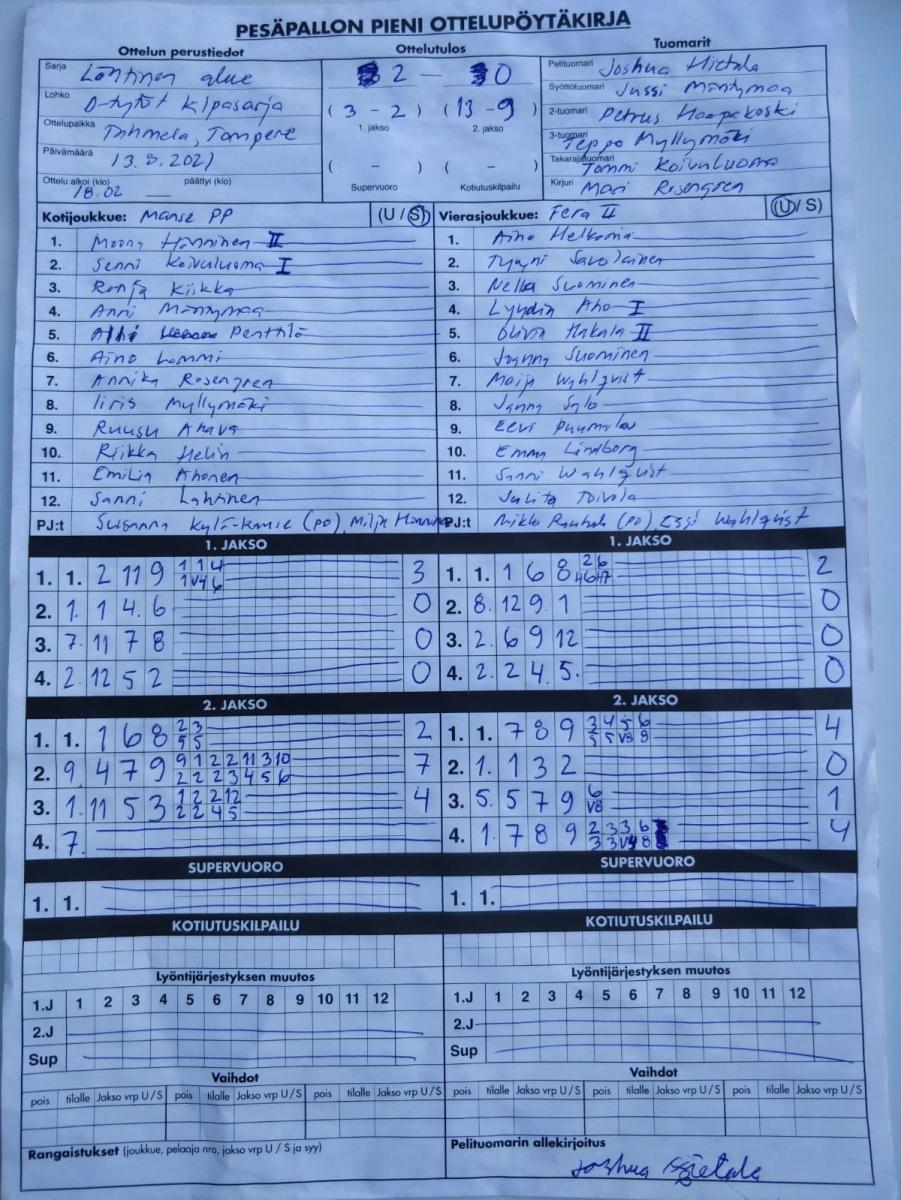 PESÄPALLON PIENI OTTELUPÖYTÄKIRJA
Ottelun perustiedot
Ottelutulos
Tuomarit
Sarja Läntinen alue
2 – 0
Pelituomari Joshua Hietala
Lohko D-tytöt Kilpasarja
( 3 - 2 ) (13 - 9)
Syöttötuomari Jussi Mäntymaa
1. jakso 2. jakso
2-tuomari Petrus Haapakoski
Ottelupaikka Tahmela, Tampere
3-tuomari Teppo Myllymäki
Päivämäärä 13.8.2021
( - ) ( - )
Takarajatuomari Tommi Koivuluoma
Ottelu alkoi (klo) 18.02 päättyi (klo)
Supervuoro Kotiutuskilpailu
Kirjuri Mari Rosengren
Kotijoukkue: Manse PP (U / S)
Vierasjoukkue: Fera II (U / S)
1. Moona Hänninen II
1. Aino Helkamia
2. Senni Koivuluoma I
2. Tyyni Savolainen
3. Ronja Kiikka
3. Nella Suominen
4. Anni Mäntymaa
4. Lyydia Aho I
5. Penttilä
5. Olivia Hakala II
6. Aino Lammi
6. Joanna Suominen
7. Annika Rosengren
7. Maija Wahlqvist
8. Iiris Myllymäki
8. Janna Salo
9. Ruusu Ahava
9. Eevi
10. Riikka Helin
10. Emma Lindborg
11. Emilia Ahonen
11. Sanni Wahlqvist
12. Sanni Lahtinen
12. Julita Toivola
PJ:t Susanna Kylä-Kause (PO), Milja Hänninen
PJ:t Mikko (PO), Essi Wahlqvist
1. JAKSO
1. JAKSO
1. 1. 2 11 9 1 1 4 3
1 V4 6
1. 1. 1 6 8 2 6 2
2. 1. 1 4. 6 0
2. 8. 12 9. 1 0
3. 7. 11 7 8 0
3. 2. 6 9 12 0
4. 2. 12 5 2 0
4. 2. 2 4 5. 0
2. JAKSO
2. JAKSO
1. 1. 1 6 8 2 3 2
5 5
1. 1. 7 8 9 3 4 5 6 4
5 5 V8 8
2. 9. 4 7 9 9 1 2 2 11 3 10 7
2 2 2 3 4 5 6
2. 1. 1 3 2 0
3. 1. 11 5 3 1 2 2 12 4
2 2 4 5
3. 5. 5 7 9 6 1
V8
4. 7.
4. 1. 7 8 9 2 3 3 6 4
3 3 V4 8
SUPERVUORO
SUPERVUORO
1. 1.
1. 1.
KOTIUTUSKILPAILU
KOTIUTUSKILPAILU
Lyöntijärjestyksen muutos
Lyöntijärjestyksen muutos
1.J 1 2 3 4 5 6 7 8 9 10 11 12
1.J 1 2 3 4 5 6 7 8 9 10 11 12
2.J
2.J
Sup
Sup
Vaihdot
Vaihdot
pois tilalle Jakso vrp U / S pois tilalle Jakso vrp U / S pois tilalle Jakso vrp U / S
pois tilalle Jakso vrp U / S pois tilalle Jakso vrp U / S pois tilalle Jakso vrp U / S
Rangaistukset (joukkue, pelaaja nro, jakso vrp U / S ja syy)
Pelituomarin allekirjoitus
Joshua Hietala